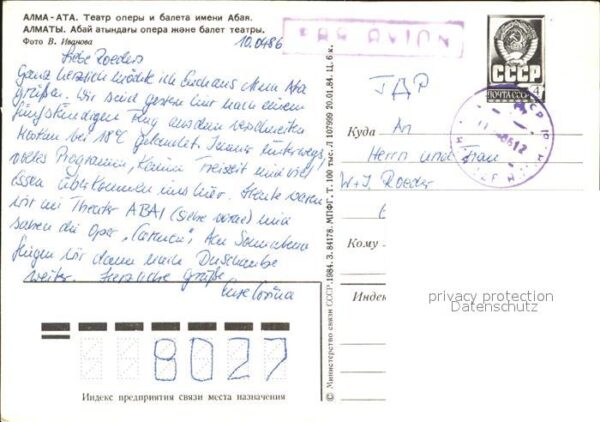 АЛМА-АТА. Театр оперы и балета имени Абая.
АЛМАТЫ. Абай атындағы опера және балет театры.
Фото В. Иванова
10.04.86
Liebe Roeders
Ganz herzlich möchte ich Euch aus Alma Ata
grüßen. Wir sind gestern hier nach einem
fünfstündigen Flug aus dem verschneiten
Moskau bei 18°C gelandet. Immer unterwegs,
volles Programm, kaum Freizeit und viel
Essen überkommen uns hier. Heute waren
wir im Theater ABAI (siehe vorne) und
sahen die Oper „Carmen“. Am Sonnabend
fliegen wir dann nach Duschanbe
weiter. Herzliche Grüße
Eure Corina
8027
Индекс предприятия связи места назначения
© Министерство связи СССР. 1984. З. 84178. МПФГ. Т. 100 тыс. Л 107999 20.01.84. Ц. 6 к.
PAR AVION
СССР
ПОЧТА СССР 4
ГДР
Куда An
Herrn und Frau
W+J. Roeder
Кому
Индекс
privacy protection
Datenschutz